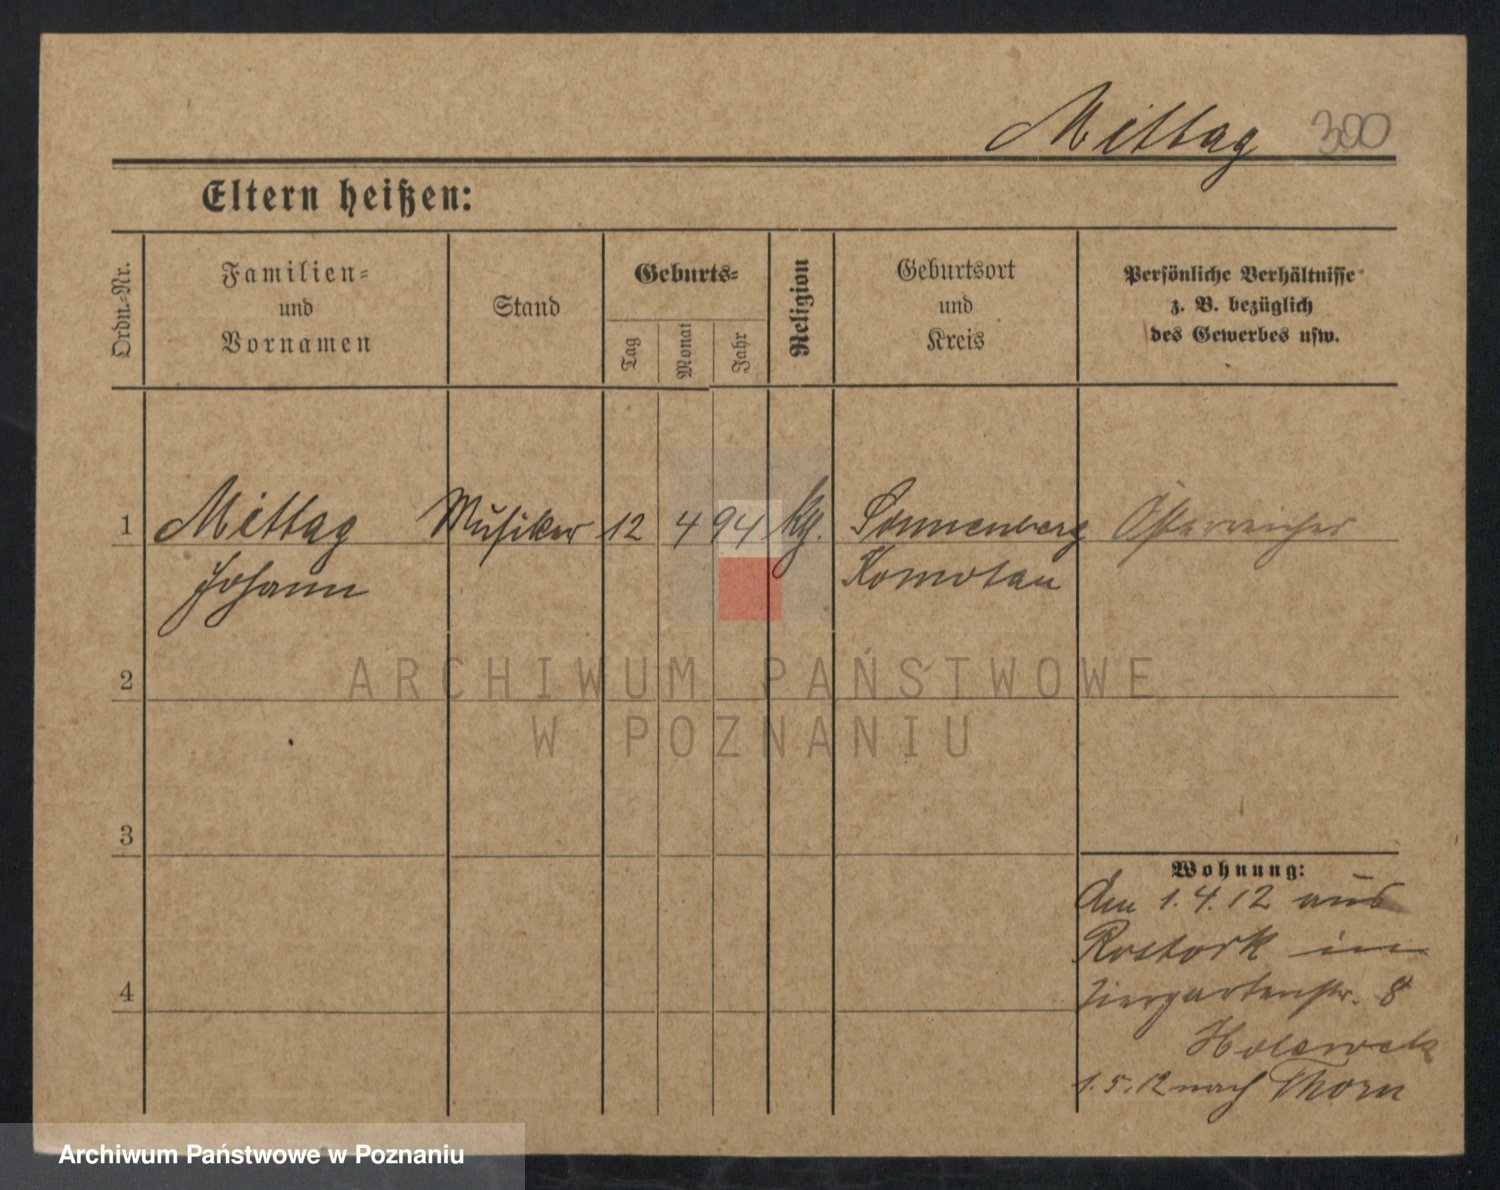 Mittag 300
Eltern heißen:
Ordn.-Nr.
Familien-
und
Vornamen
Stand
Geburts-
Tag
Monat
Jahr
Religion
Geburtsort
und
Kreis
Persönliche Verhältnisse
z. B. bezüglich
des Gewerbes usw.
1 Mittag Musiker 12 4 94 kg. Sonnenberg Österreicher
Johann Komotau
2
3
4
Wohnung:
Am 1.4.12 aus
Rostock in
Tiergartenstr. 8
1.5.12 nach Thorn
ARCHIWUM PAŃSTWOWE
W POZNANIU
Archiwum Państwowe w Poznaniu